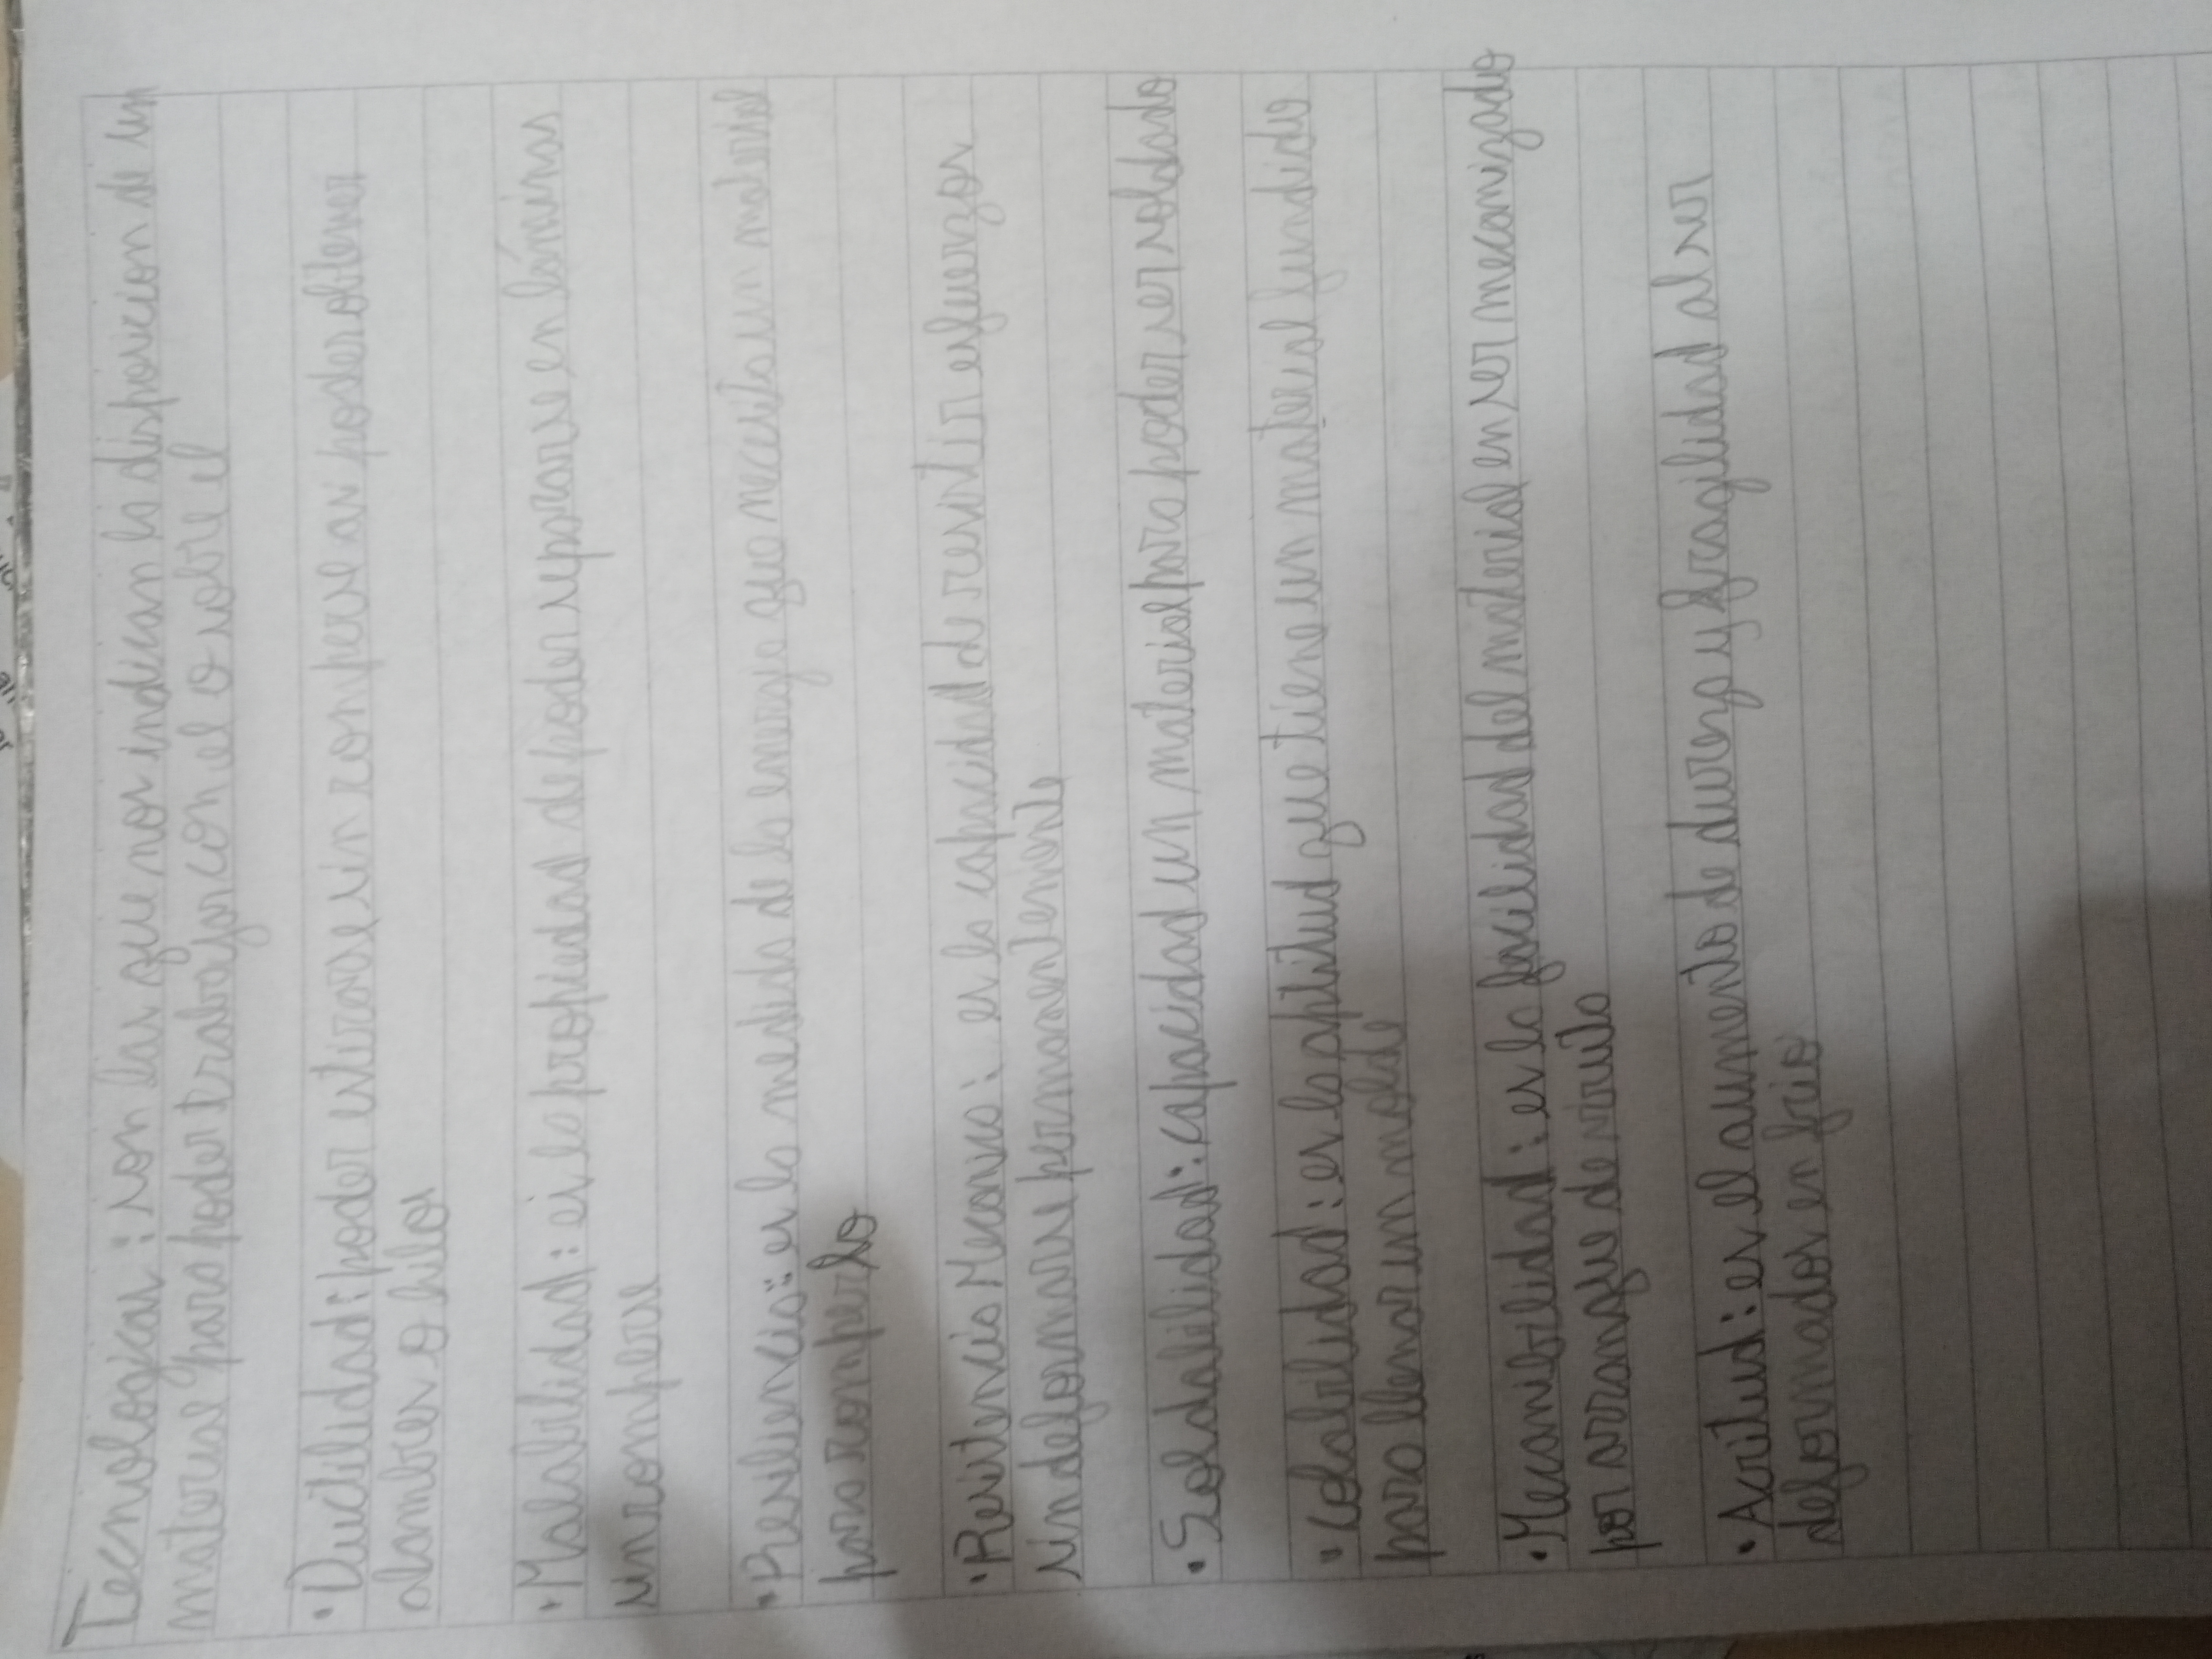 Tecnologicas: son las que nos indican la disposicion de un
material para poder trabajar con el o sobre el
• Ductilidad: poder estirarse sin romperse asi poder obtener
alambres o hilos
• Malabilidad: es la propiedad de poder separarse en láminas
sin romperse
• Resilencia: es la medida de la energia que necesita un material
para romperlo
• Resistencia Mecanica: es la capacidad de resistir esfuerzos
sin deformarse permanentemente
• Soldabilidad: capacidad un material para poder ser soldado
• Colabilidad: es la aptitud que tiene un material fundido
para llenar un molde
• Mecanibilidad: es la facilidad del material en ser mecanizado
por arranque de viruta
• Acritud: es el aumento de dureza y fragilidad al ser
deformados en frio